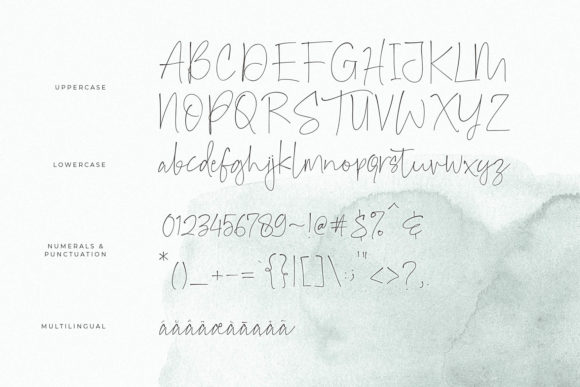 UPPERCASE
ABCDEFGHIJKLM
NOPQRSTUVWXYZ
LOWERCASE
abcdefghijklmnopqrstuvwxyz
NUMERALS &
PUNCTUATION
0123456789~!@#$%^&
*()_+-=`{}|[]\:;'"<>?,.
MULTILINGUAL